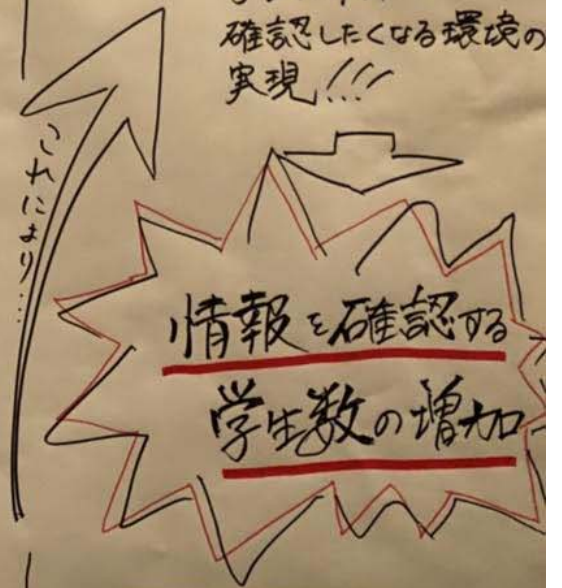 確認したくなる環境の
実現!!!
これにより…
情報を確認する
学生数の増加